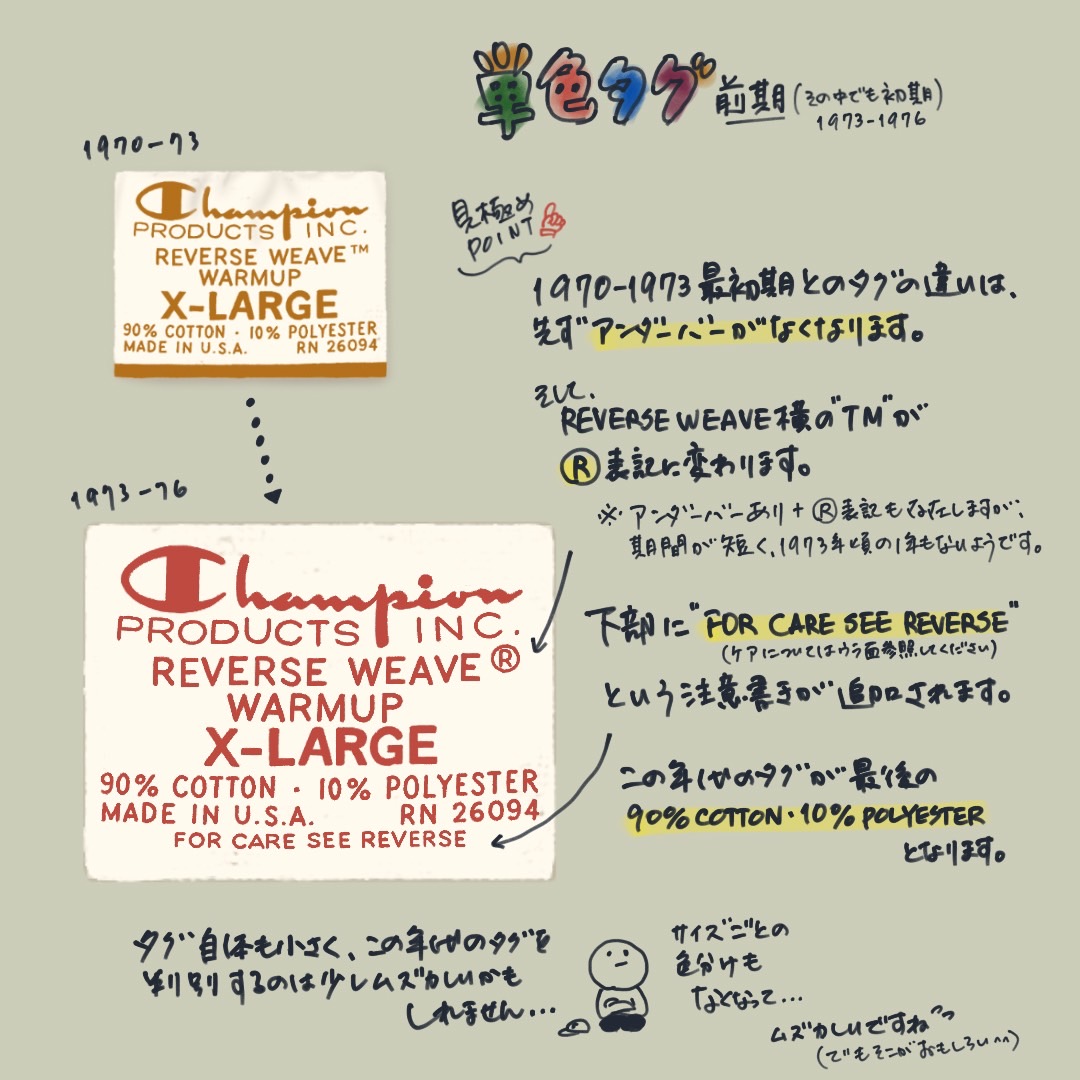 単色タグ 前期 (その中でも初期)
1973-1976
1970-73
Champion
PRODUCTS INC.
REVERSE WEAVE™
WARMUP
X-LARGE
90% COTTON · 10% POLYESTER
MADE IN U.S.A. RN 26094
見極め
POINT
1970-1973 最初期とのタグの違いは、
先ずアンダーバーがなくなります。
そして、
REVERSE WEAVE 横の"TM"が
Ⓡ表記に変わります。
※アンダーバーあり+Ⓡ表記も存在しますが、
期間が短く、1973年頃の1年もないようです。
1973-76
Champion
PRODUCTS INC.
REVERSE WEAVE®
WARMUP
X-LARGE
90% COTTON · 10% POLYESTER
MADE IN U.S.A. RN 26094
FOR CARE SEE REVERSE
下部に"FOR CARE SEE REVERSE"
(ケアについてはウラ面参照してください)
という注意書きが追加されます。
この年代のタグが最後の
90% COTTON・10% POLYESTER
となります。
タグ自体も小さく、この年代のタグを
判別するのは少しムズかしいかも
しれません…
サイズごとの
色分けも
なくなって…
ムズかしいですね^^
(でもそこがおもしろい^^)